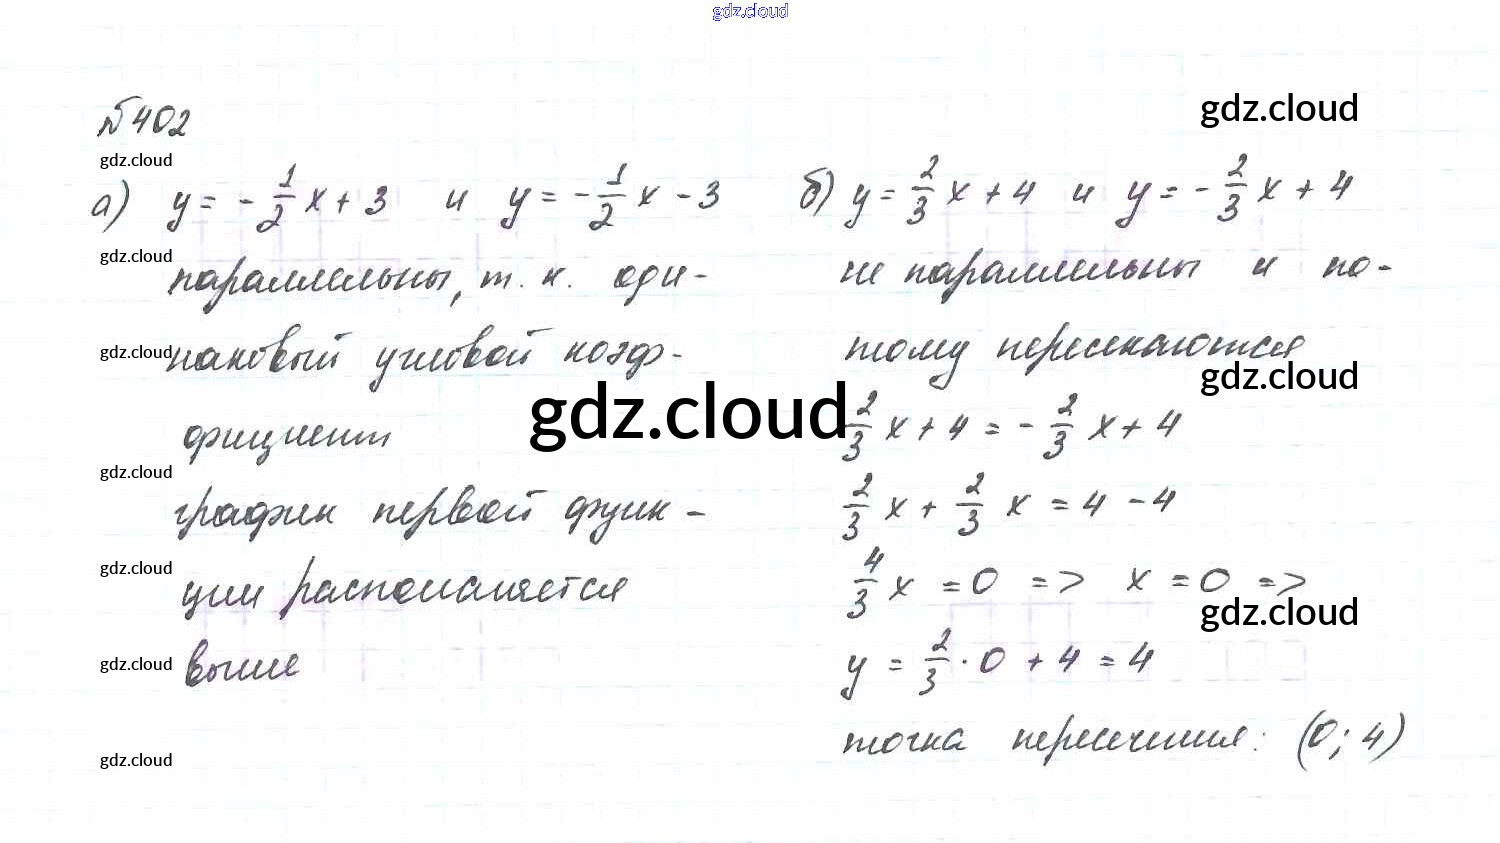 gdz.cloud
№402
gdz.cloud
gdz.cloud
а) y = - 1/2 x + 3 и y = - 1/2 x - 3
gdz.cloud
параллельны, т. к. оди-
gdz.cloud
наковый угловой коэф-
фициент
gdz.cloud
gdz.cloud
график первой функ-
gdz.cloud
ции располагается
gdz.cloud
выше
gdz.cloud
б) y = 2/3 x + 4 и y = - 2/3 x + 4
не параллельны и по-
тому пересекаются
gdz.cloud
2/3 x + 4 = - 2/3 x + 4
2/3 x + 2/3 x = 4 - 4
4/3 x = 0 => x = 0 =>
gdz.cloud
y = 2/3 · 0 + 4 = 4
точка пересечения: (0; 4)